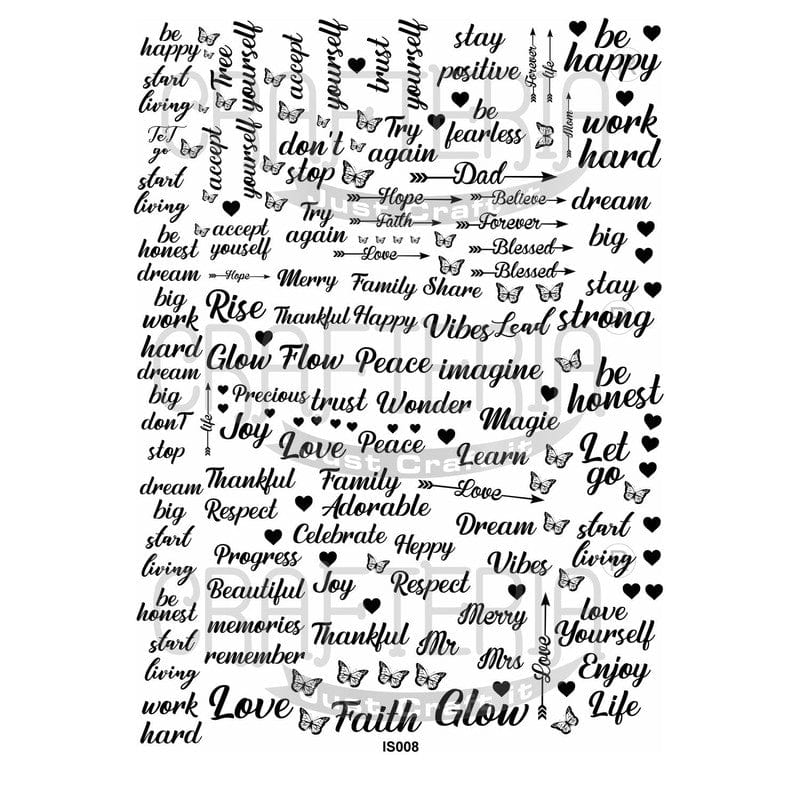 be
happy
start
living
TcT
go
start
living
be
honest
dream
big
work
hard
dream
big
donT
stop
dream
big
start
living
be
honest
start
living
work
hard
Tree
yourself
accept
yourself
trust
yourself
stay
positive
Forever
life
be
happy
accept
yourself
don't
stop
Try
again
be
fearless
Mom
work
hard
Dad
Hope
Believe
dream
accept
youself
Try
again
Faith
Forever
big
Love
Blessed
Hope
Merry
Family
Share
Blessed
stay
strong
Rise
Thankful
Happy
Vibes
Lead
Glow
Flow
Peace
imagine
be
honest
life
Precious
trust
Wonder
Magie
Joy
Love
Peace
Learn
Let
go
Thankful
Family
Love
Respect
Adorable
Celebrate
Heppy
Dream
start
living
Progress
Vibes
Beautiful
memories
remember
Joy
Respect
Merry
love
Yourself
Thankful
Mr
Mrs
Love
Enjoy
Life
Love
Faith
Glow
CRAFTERIA
Just Craft it
CRAFTERIA
Just Craft it
CRAFTERIA
Just Craft it
IS008